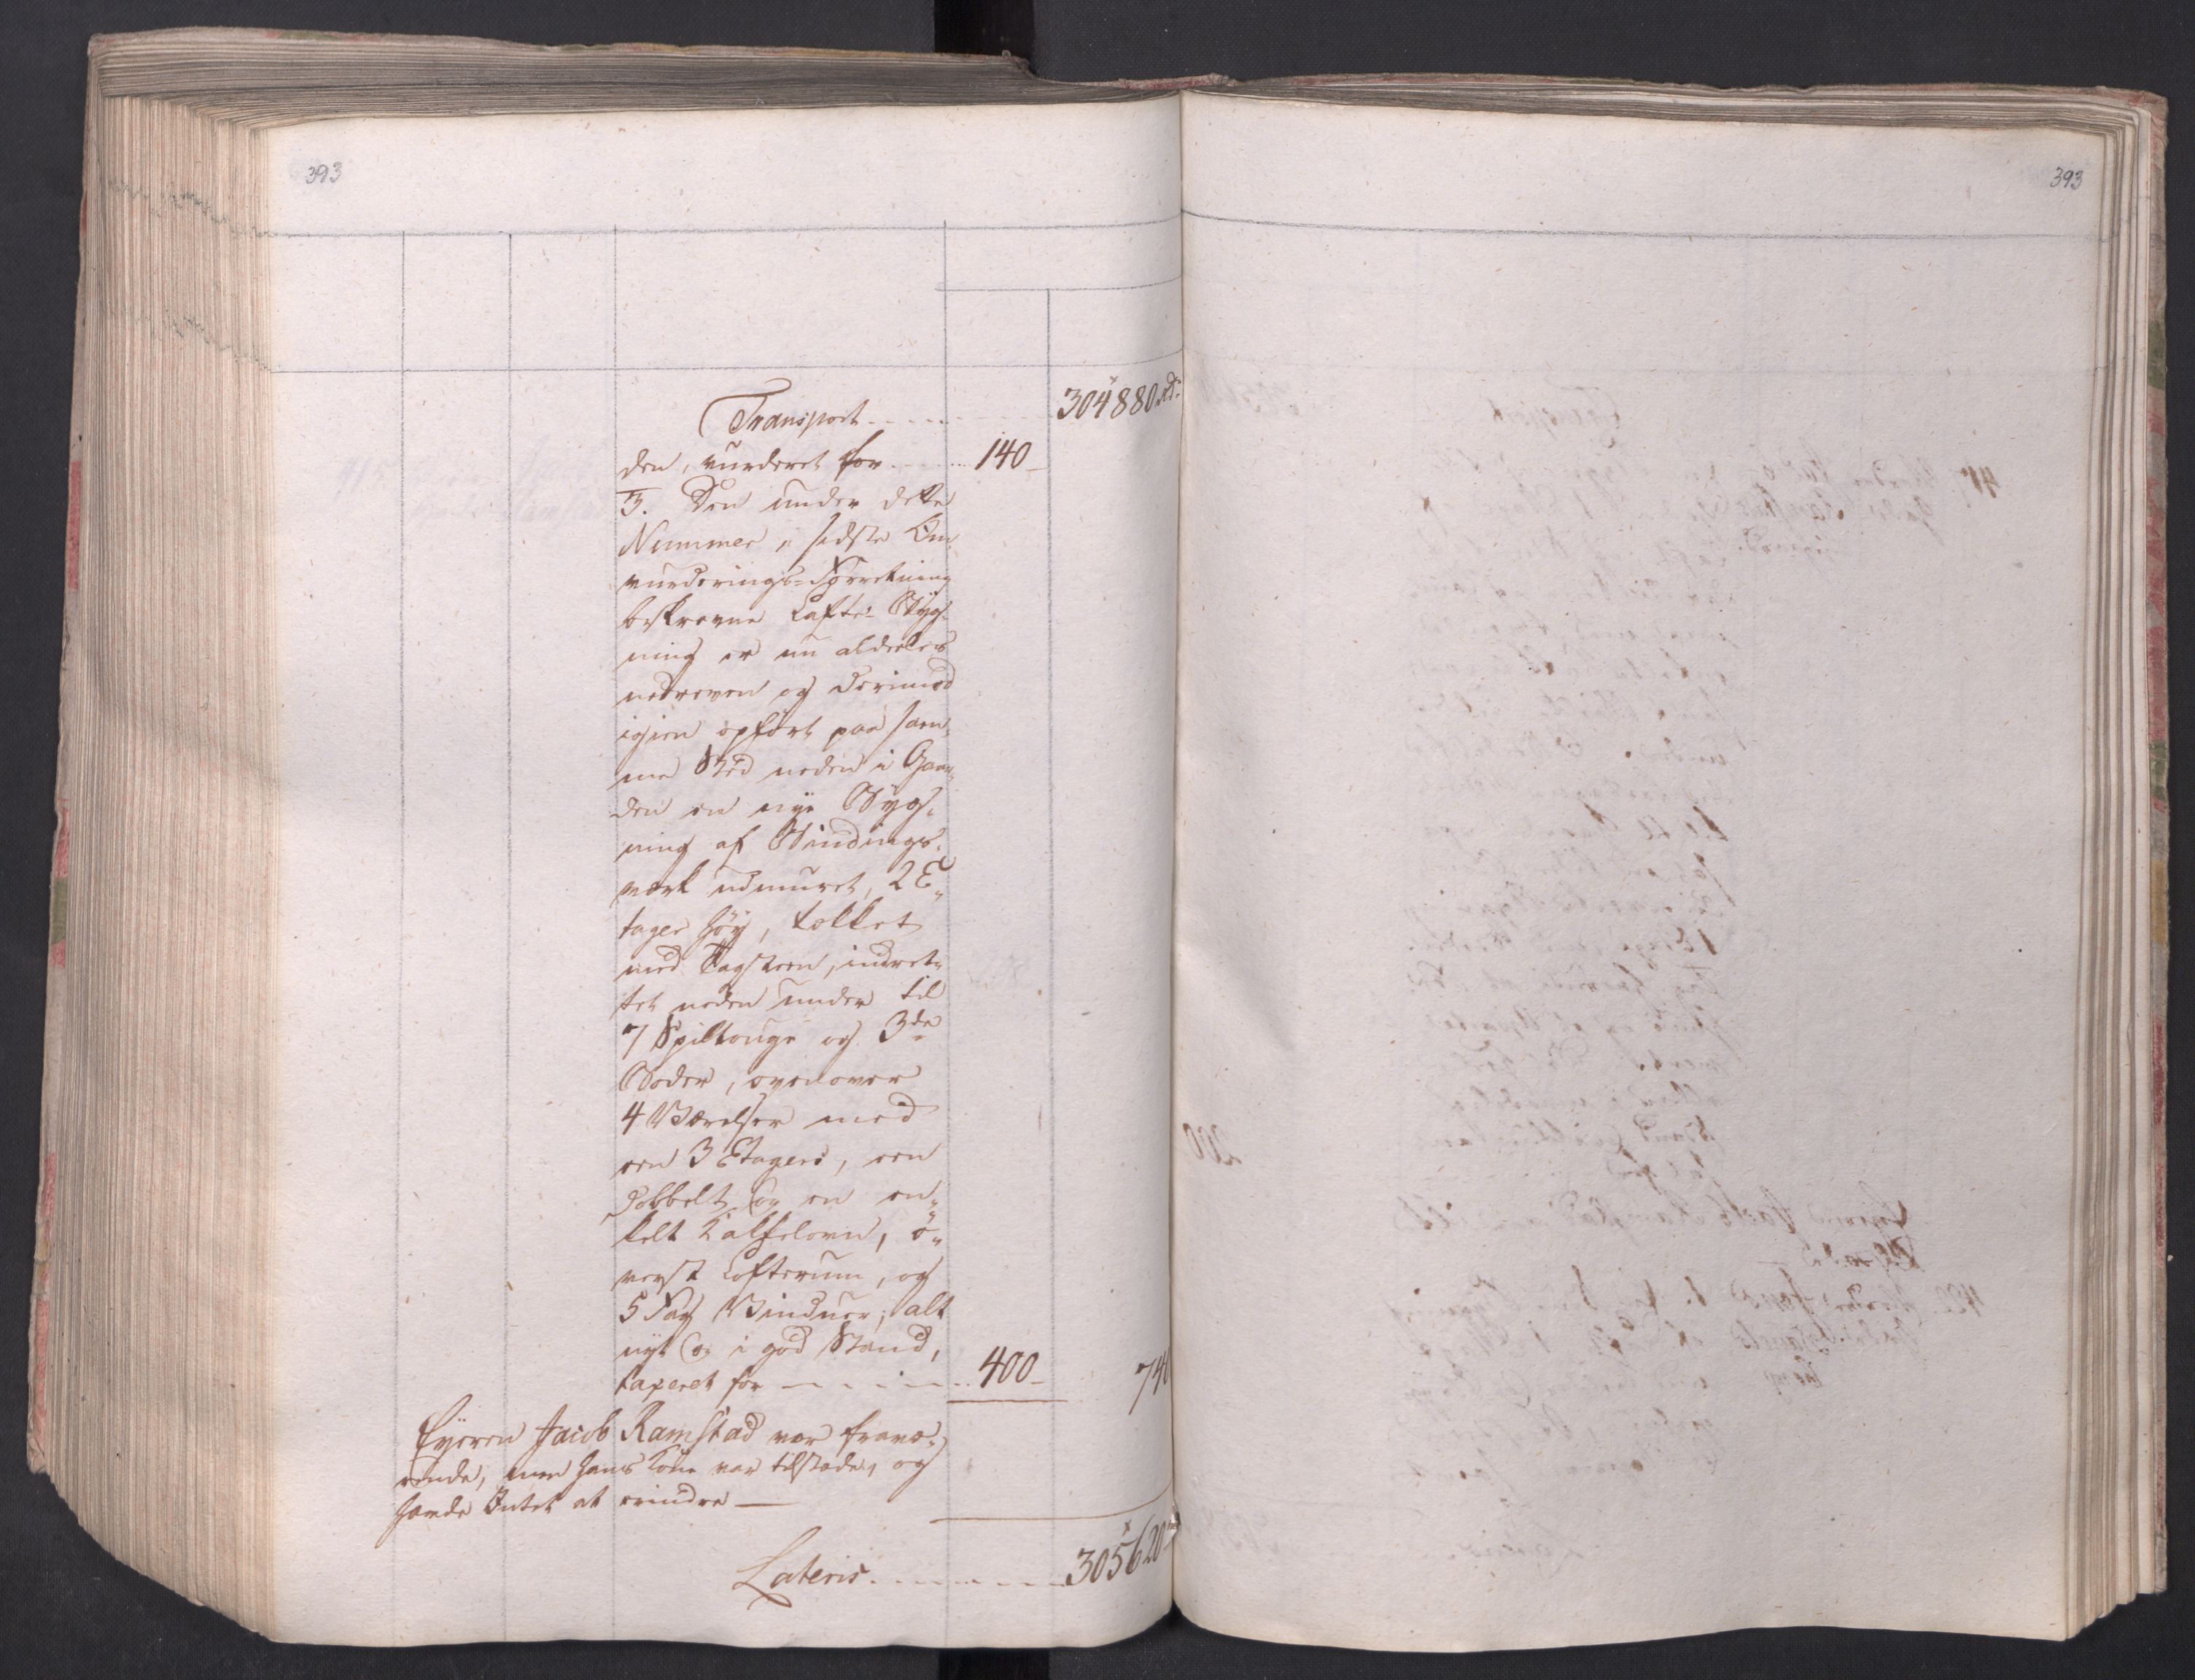 393
393
Transport - - - - 304880 rd:
den, vurderet for - - - 140 -
3. Den under dette
Nummer i sidste Om-
vurderings-Forretning
beskrevne Lafte-Byg-
ning er nu aldeeles
nedreven og derimod
igien opført paa sam-
me Stæd neden i Gaar-
den en nye Byg-
ning af Bindings-
værk udmuret, 2 E-
tager høy, tækket
med Tagsteen, indret-
tet neden under til
7 Spiltouge og 3de
Boder, ovenover
4 Værelser med
een 3 Etagers, een
dobbelt og en en-
kelt Kakkelovn, ø-
verst Lofterum, og
5 Fag Vinduer, alt
nyt og i god Stand,
taxeret for - - - - 400 - 740
Eyeren Jacob Ramstad var fravæ-
rende, men hans Kone var tilstæde, og
havde Intet at erindre —
Lateris - - - - - 305620